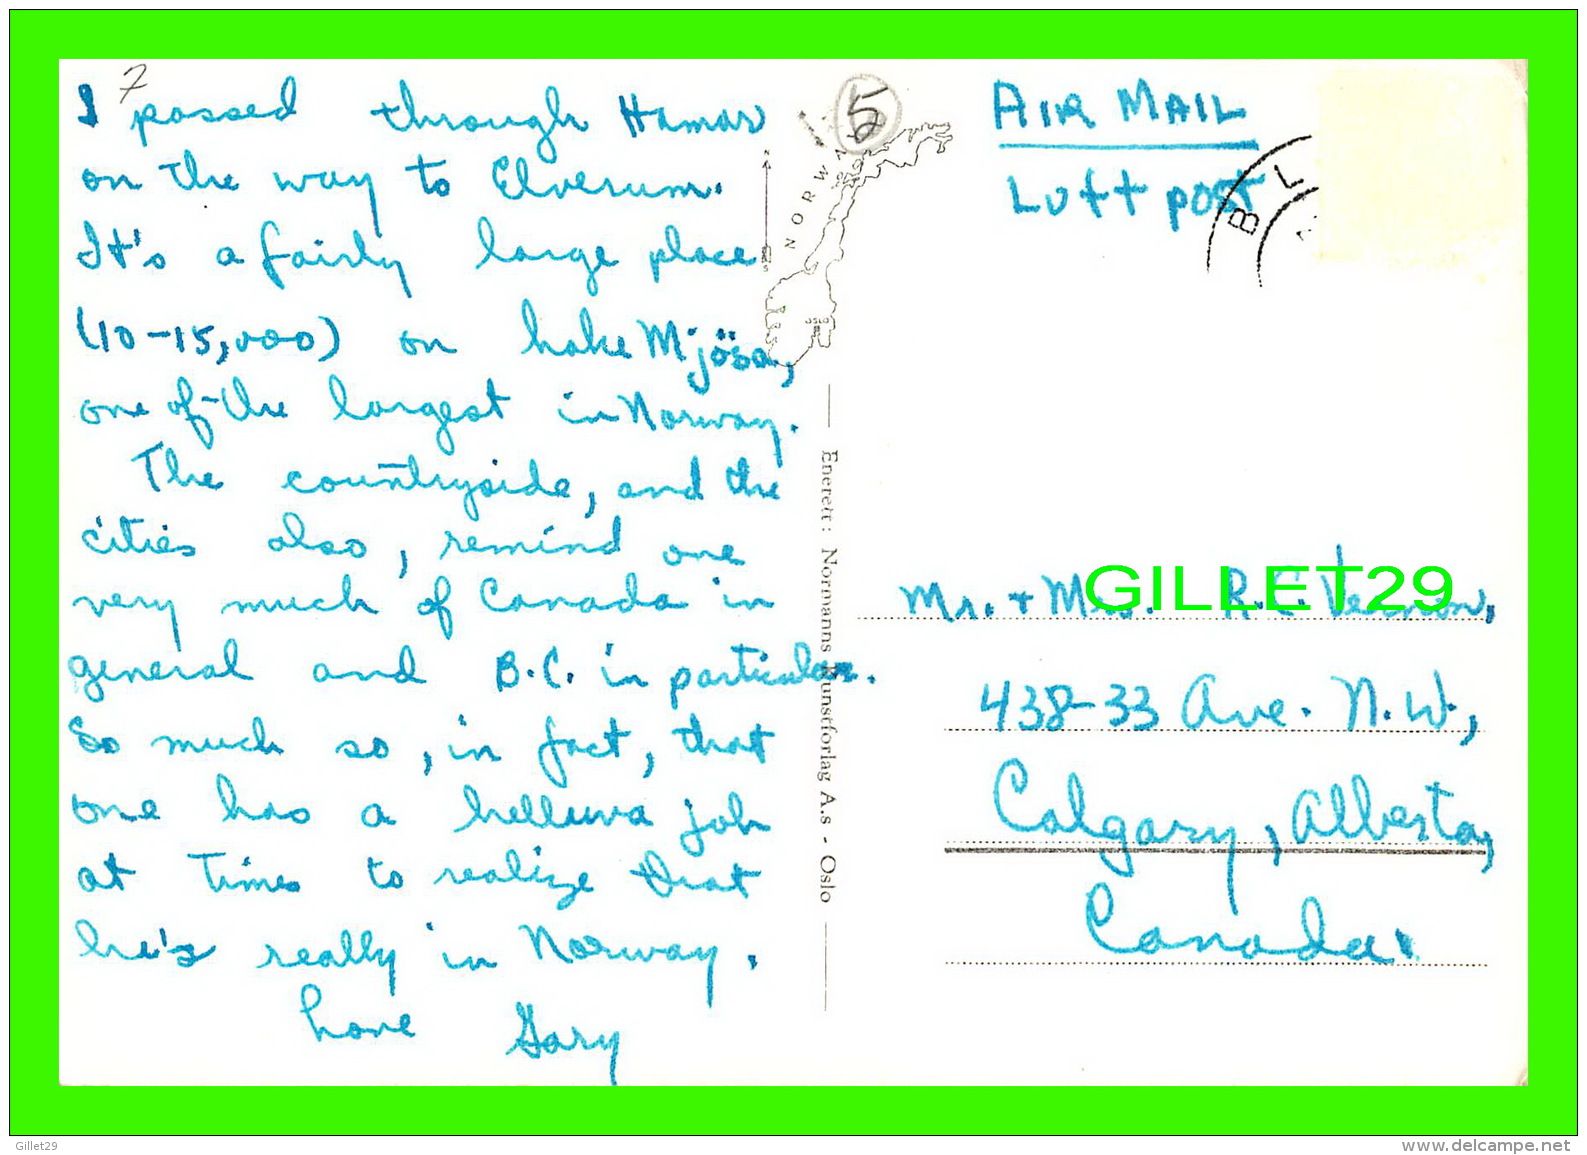 I passed through Hamar
on the way to Elverum.
It's a fairly large place
(10-15,000) on Lake Mjösa,
one of the largest in Norway.
The countryside, and the
cities also, remind one
very much of Canada in
general and B.C. in particular.
So much so, in fact, that
one has a helluva job
at times to realize that
he's really in Norway.
Love Gary
7
5
NORWAY
N
S
OSLO
Enerett: Normanns Kunstforlag A.s - Oslo
AIR MAIL
Luft post
B L
GILLET29
Mr. + Mrs. R.C. Vernon,
438-33 Ave. N.W.,
Calgary, Alberta,
Canada.
Gillet29
www.delcampe.net